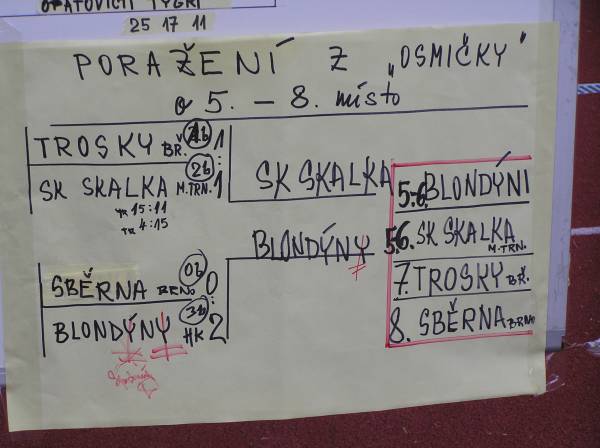 OPATOVIČTÍ TYGŘI
25 17 11
PORAŽENÍ Z „OSMIČKY"
o 5. – 8. místo
TROSKY BŘ. 1b 1
:
SK SKALKA M.TRN. 2b 1
TR 15:11
TR 4:15
SK SKALKA
BLONDÝNY
SBĚRNA BRNO 0b 0
:
BLONDÝNY HK 3b 2
5.-6. BLONDÝNI
5.6. SK SKALKA M.TRN.
7. TROSKY BŘ.
8. SBĚRNA BRNO